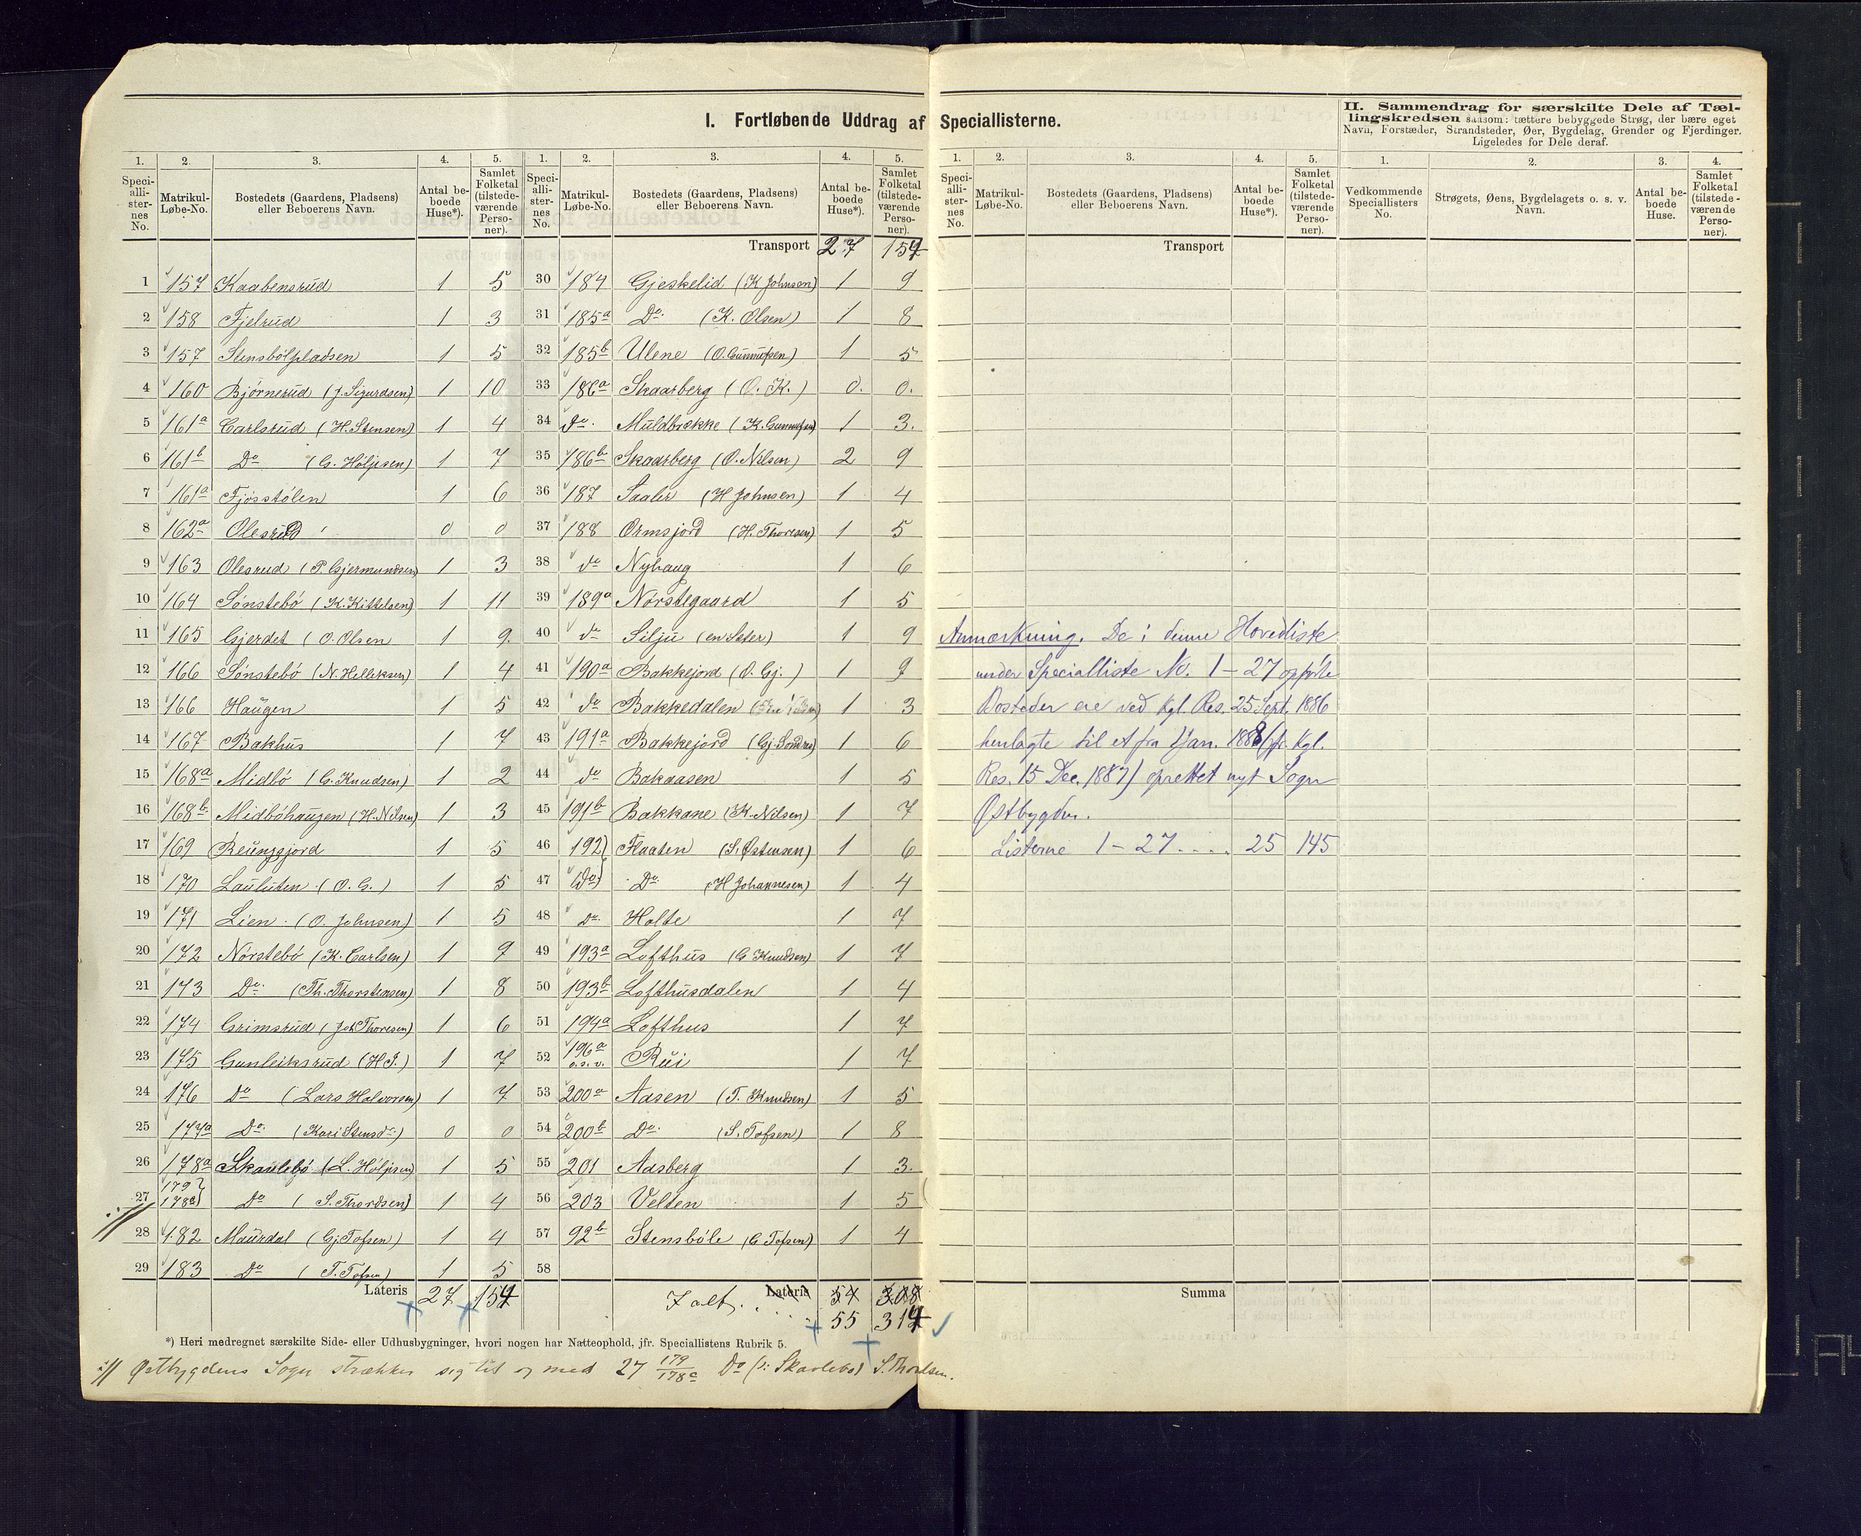 I. Fortløbende Uddrag af Speciallisterne.
II. Sammendrag for særskilte Dele af Tællingskredsen saasom: tættere bebyggede Strøg, der bære eget
Navn, Forstæder, Strandsteder, Øer, Bygdelag, Grender og Fjerdinger.
Ligeledes for Dele deraf.
1. 2. 3. 4. 5. 1. 2. 3. 4. 5. 1. 2. 3. 4. 5. 1. 2. 3. 4.
Speciallisternes No. Matrikul-Løbe-No. Bostedets (Gaardens, Pladsens) eller Beboerens Navn. Antal beboede Huse*). Samlet Folketal (tilstedeværende Personer).
Speciallisternes No. Matrikul-Løbe-No. Bostedets (Gaardens, Pladsens) eller Beboerens Navn. Antal beboede Huse*). Samlet Folketal (tilstedeværende Personer).
Speciallisternes No. Matrikul-Løbe-No. Bostedets (Gaardens, Pladsens) eller Beboerens Navn. Antal beboede Huse*). Samlet Folketal (tilstedeværende Personer).
Vedkommende Speciallisters No. Strøgets, Øens, Bygdelagets o. s. v. Navn. Antal beboede Huse. Samlet Folketal (tilstedeværende Personer).
1 157 Kaabensrud 1 5
2 158 Fjelrud 1 3
3 157 Stensbølpladsen 1 5
4 160 Bjørnerud (J. Sigurdsen) 1 10
5 161a Carlsrud (H. Stensen) 1 4
6 161b Do (G. Høljesen) 1 7
7 161a Fjøsstølen 1 6
8 162a Olesrud 0 0
9 163 Olesrud (P. Gjermundsen 1 3
10 164 Sønstebø (K. Kittelsen) 1 11
11 165 Gjerdet (O. Olsen 1 9
12 166 Sønstebø (N. Helliksen) 1 4
13 166 Haugen 1 5
14 167 Bakhus 1 7
15 168a Midbø (G. Knudsen) 1 2
16 168b Midbøhaugen (H. Nilsen 1 3
17 169 Reungsjord 1 5
18 170 Lauluten (O. G.) 1 5
19 171 Lien (O. Johnsen) 1 5
20 172 Nørstebø (K. Carlsen) 1 9
21 173 Do. (Th. Thorstensen) 1 8
22 174 Grimsrud (Joh Thoresen) 1 6
23 175 Gunleiksrud (H. J.) 1 7
24 176 Do (Lars Halvorsen) 1 7
25 177a Do. (Kari Stensdr.) 0 0
26 178a Skaulebø (L. Høljesen) 1 5
27 179 178c Do (S. Thordsen) 1 4
28 182 Maurdal (Gj. Tofsen) 1 4
29 183 Do (T. Tofsen) 1 5
Lateris 27 154
Transport 27 154
30 184 Gjeskelid (K Johnsen) 1 9
31 185a Do. (K. Olsen) 1 8
32 185b Ulene (O. Gunnufsen) 1 5
33 186a Skaarberg (O. K.) 0. 0.
34 do. Muldbrække (K. Gunnufsen) 1 3.
35 186b Skaarberg (O. Nilsen) 2 9
36 187 Saaler (H Johnsen) 1 4
37 188 Ormsjord (H. Thoresen) 1 5
38 do Nyhaug 1 6
39 189a Nørstegaard 1 5
40 do Silju (en Sæter) 1 9
41 190a Bakkejord (O. Gj.) 1 9
42 do Bakkedalen 1 3
43 191a Bakkejord 1 6
44 do Bakaasen 1 5
45 191b Bakkane (K. Nilsen) 1 7
46 192 Flaaten (S. Østensen) 1 6
47 (Do) Do. (H Johannesen) 1 4
48 Do. Holte 1 7
49 193a Lofthus (G Knudsen) 1 7
50 193b Lofthusdalen 1 4
51 194a Lofthus 1 7
52 196a o.s.v. Rui 1 7
53 200a Aasen (T. Knudsen) 1 5
54 200b Do. (S. Tofsen) 1 8
55 201 Aasberg 1 3.
56 203 Velten 1 5
57 92b Stensbøle (G Tofsen) 1 4
58
Lateris 54 308
Ialt 55 314
Transport
Anmærkning. De i denne Hovedliste
under Specialliste No. 1-27 opførte
Bosteder ere ved Kgl. Res. 25 Sept. 1886
henlagte til et fra 1 Jan. 1888 (jfr. Kgl.
Res. 15 Dec. 1887) oprettet nyt Sogn
Østbygden.
Listerne 1-27 .... 25 145
Summa
*) Heri medregnet særskilte Side- eller Udhusbygninger, hvori nogen har Natteophold, jfr. Speciallistens Rubrik 5.
Østbygdens Sogn strækker sig til og med 27 179/178c Do (: Skaulebø) S. Thordsen.